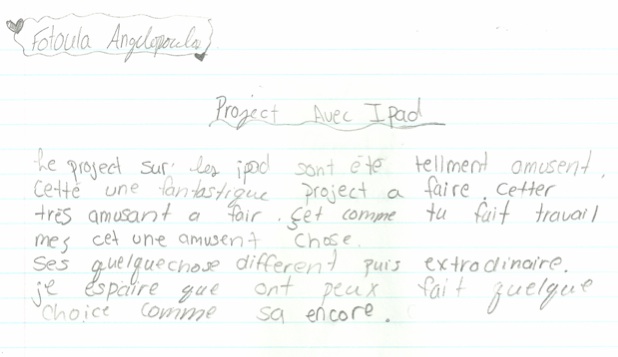 Fotoula Angelopoulos
Project Avec Ipad
Le project sur les ipad sont été tellment amusent.
Cetté une fantastique project a faire. cetter
très amusant a fair. Set comme tu fait travail
mes cet une amusent chose.
Ses quelquechose different puis extrodinaire.
je espaire que ont peux fait quelque
choice comme sa encore.